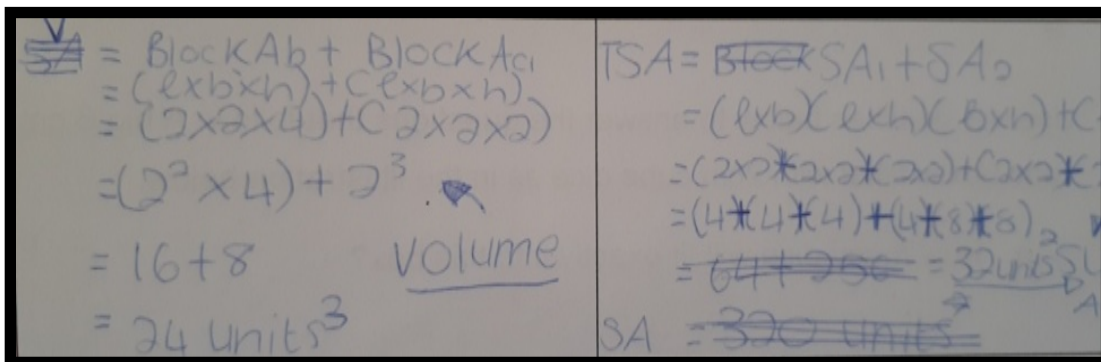 V
SA = BlockAb + BlockAc1
= (lxbxh) + (lxbxh)
= (2x2x4)+(2x2x2)
=(2²x4)+2³
= 16+8
volume
= 24 units³
TSA = Block SA1+SA2
= (lxb)(lxh)(Bxh)+(
=(2x2)+(2x2)+(2x2)+(2x2)+(
=(4)+(4)+(4)+(4)+(8)+(8)
= 64 + 256 = 32units²
SA = 320 units²